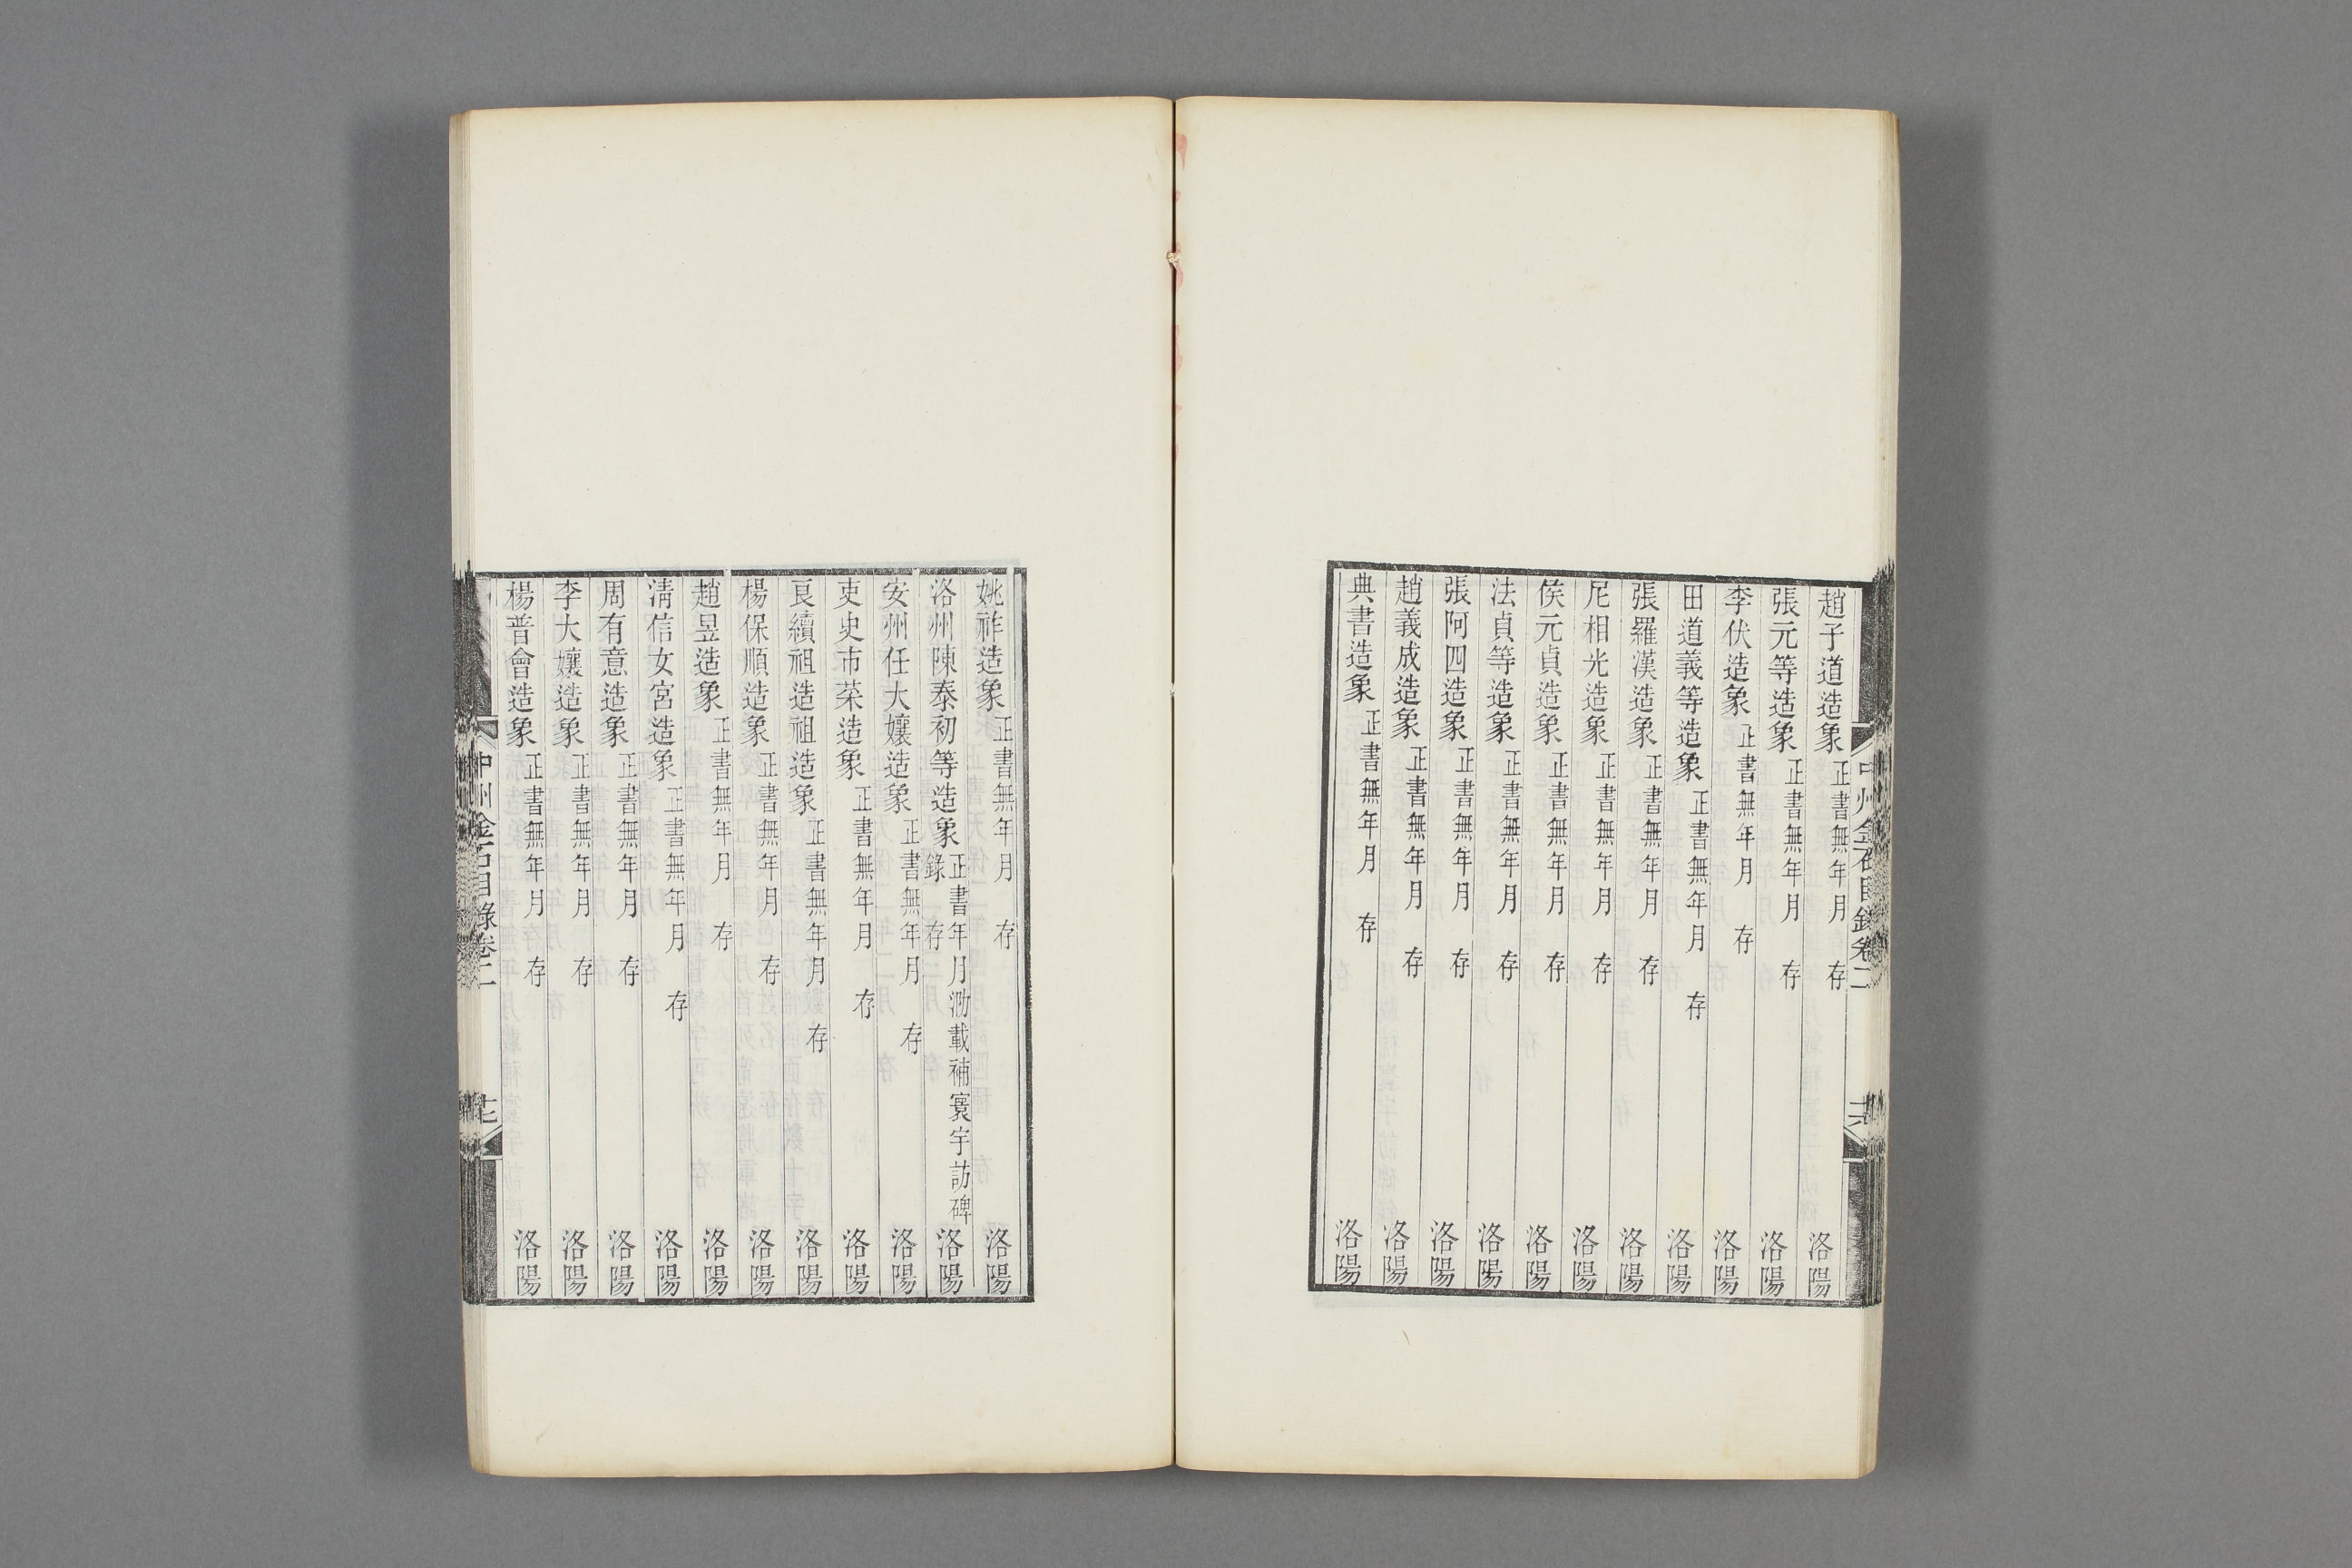 趙子道造象正書無年月 存 洛陽
張元等造象正書無年月 存 洛陽
李伏造象正書無年月 存 洛陽
田道義等造象正書無年月 存 洛陽
張羅漢造象正書無年月 存 洛陽
尼相光造象正書無年月 存 洛陽
侯元貞造象正書無年月 存 洛陽
法貞等造象正書無年月 存 洛陽
張阿四造象正書無年月 存 洛陽
趙義成造象正書無年月 存 洛陽
典書造象正書無年月 存 洛陽
中州金石目錄卷二
姚祚造象正書無年月 存 洛陽
洛州陳泰初等造象正書年月泐載補寰宇訪碑錄 存 洛陽
安州任大孃造象正書無年月 存 洛陽
吏史市荣造象正書無年月 存 洛陽
良續祖造祖造象正書無年月 存 洛陽
楊保順造象正書無年月 存 洛陽
趙昱造象正書無年月 存 洛陽
清信女宮造象正書無年月 存 洛陽
周有意造象正書無年月 存 洛陽
李大孃造象正書無年月 存 洛陽
楊普會造象正書無年月 存 洛陽
中州金石目錄卷二